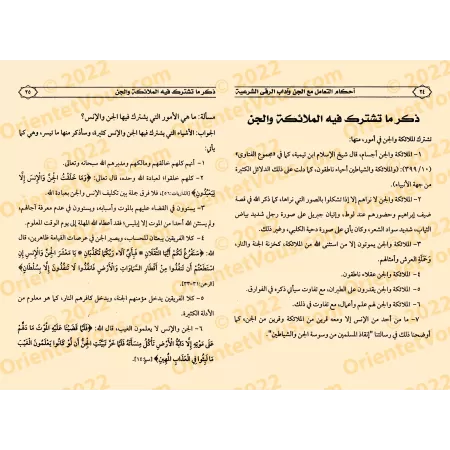 ٢٤
أحكام التعامل مع الجن وآداب الرقى الشرعية
ذكر ما تشترك فيه الملائكة والجن
تشترك الملائكة والجن في أمور، منها:
١ - الملائكة والجن أجسام، قال شيخ الإسلام ابن تيمية، كما في «مجموع الفتاوى»
(٣٩٩/١٠): «والملائكة والشياطين أحياء ناطقون، كما دلت على ذلك الدلائل الكثيرة
من جهة الأنبياء».
٢ - الملائكة والجن لا نراهم إلا إذا تشكلوا بالصور التي نراها، كما ذكر الله في قصة
ضيف إبراهيم وحضورهم عند لوط، وإتيان جبريل على صورة رجل شديد بياض
الثياب، شديد سواد الشعر، وكان يأتي على صورة دحية الكلبي، وغير ذلك.
٣ - الملائكة والجن يموتون إلا من استثنى الله من الملائكة، كخزنة الجنة والنار،
وحملة العرش وأمثالهم.
٤ - الملائكة والجن عقلاء ناطقون.
٥ - الملائكة والجن يقدرون على الطيران، مع تفاوت سيأتي ذكره في الفوارق.
٦ - الملائكة والجن لهم علم وأعمال، مع تفاوت في ذلك.
٧ - ما من أحد من الإنس إلا ومعه قرين من الملائكة وقرين من الجن، كما
أوضحنا ذلك في رسالتنا "إنقاذ المسلمين من وسوسة الجن والشياطين".
ذكر ما تشترك فيه الملائكة والجن
٢٥
مسألة: ما هي الأمور التي يشترك فيها الجن والإنس؟
الجواب: الأشياء التي يشترك فيها الجن والإنس كثيرة، وسأذكر منها ما تيسر، وهي كما
يأتي:
١ - أنهم كلهم خالقهم ومالكهم ومدبرهم الله سبحانه وتعالى.
٢ - أنهم كلهم خلقوا لعبادة الله وحده، قال تعالى: ﴿وَمَا خَلَقْتُ الْجِنَّ وَالْإِنْسَ إِلَّا
لِيَعْبُدُونِ﴾ [الذاريات:٥٦]، فلا فرق جملة بين تكليف الجن وتكليف الإنس.
٣ - يستوون في القضاء عليهم بالموت وأسبابه، ويستوون في عدم معرفة آجالهم،
ولم يستثن الله أحدا من الموت إلا إبليس؛ فقد أعطاه الله المهلة إلى يوم الوقت المعلوم.
٤ - كلا الفريقين يبعثان للحساب، ويصير الجن في عرصات القيامة ظاهرين، قال
الله: ﴿سَنَفْرُغُ لَكُمْ أَيُّهَا الثَّقَلَانِ * فَبِأَيِّ آلَاءِ رَبِّكُمَا تُكَذِّبَانِ * يَا مَعْشَرَ الْجِنِّ وَالْإِنْسِ إِنِ
اسْتَطَعْتُمْ أَنْ تَنْفُذُوا مِنْ أَقْطَارِ السَّمَاوَاتِ وَالْأَرْضِ فَانْفُذُوا لَا تَنْفُذُونَ إِلَّا بِسُلْطَانٍ﴾
[الرحمن:٣١-٣٣].
٥ - كلا الفريقين يدخل مؤمنهم الجنة، ويدخل كافرهم النار، كما هو معلوم من
الأدلة الكثيرة.
٦ - الجن والإنس لا يعلمون الغيب، قال الله: ﴿فَلَمَّا قَضَيْنَا عَلَيْهِ الْمَوْتَ مَا دَلَّهُمْ
عَلَى مَوْتِهِ إِلَّا دَابَّةُ الْأَرْضِ تَأْكُلُ مِنْسَأَتَهُ فَلَمَّا خَرَّ تَبَيَّنَتِ الْجِنُّ أَنْ لَوْ كَانُوا يَعْلَمُونَ الْغَيْبَ
مَا لَبِثُوا فِي الْعَذَابِ الْمُهِينِ﴾ [سبأ:١٤].
OrientetVous.com © 2022